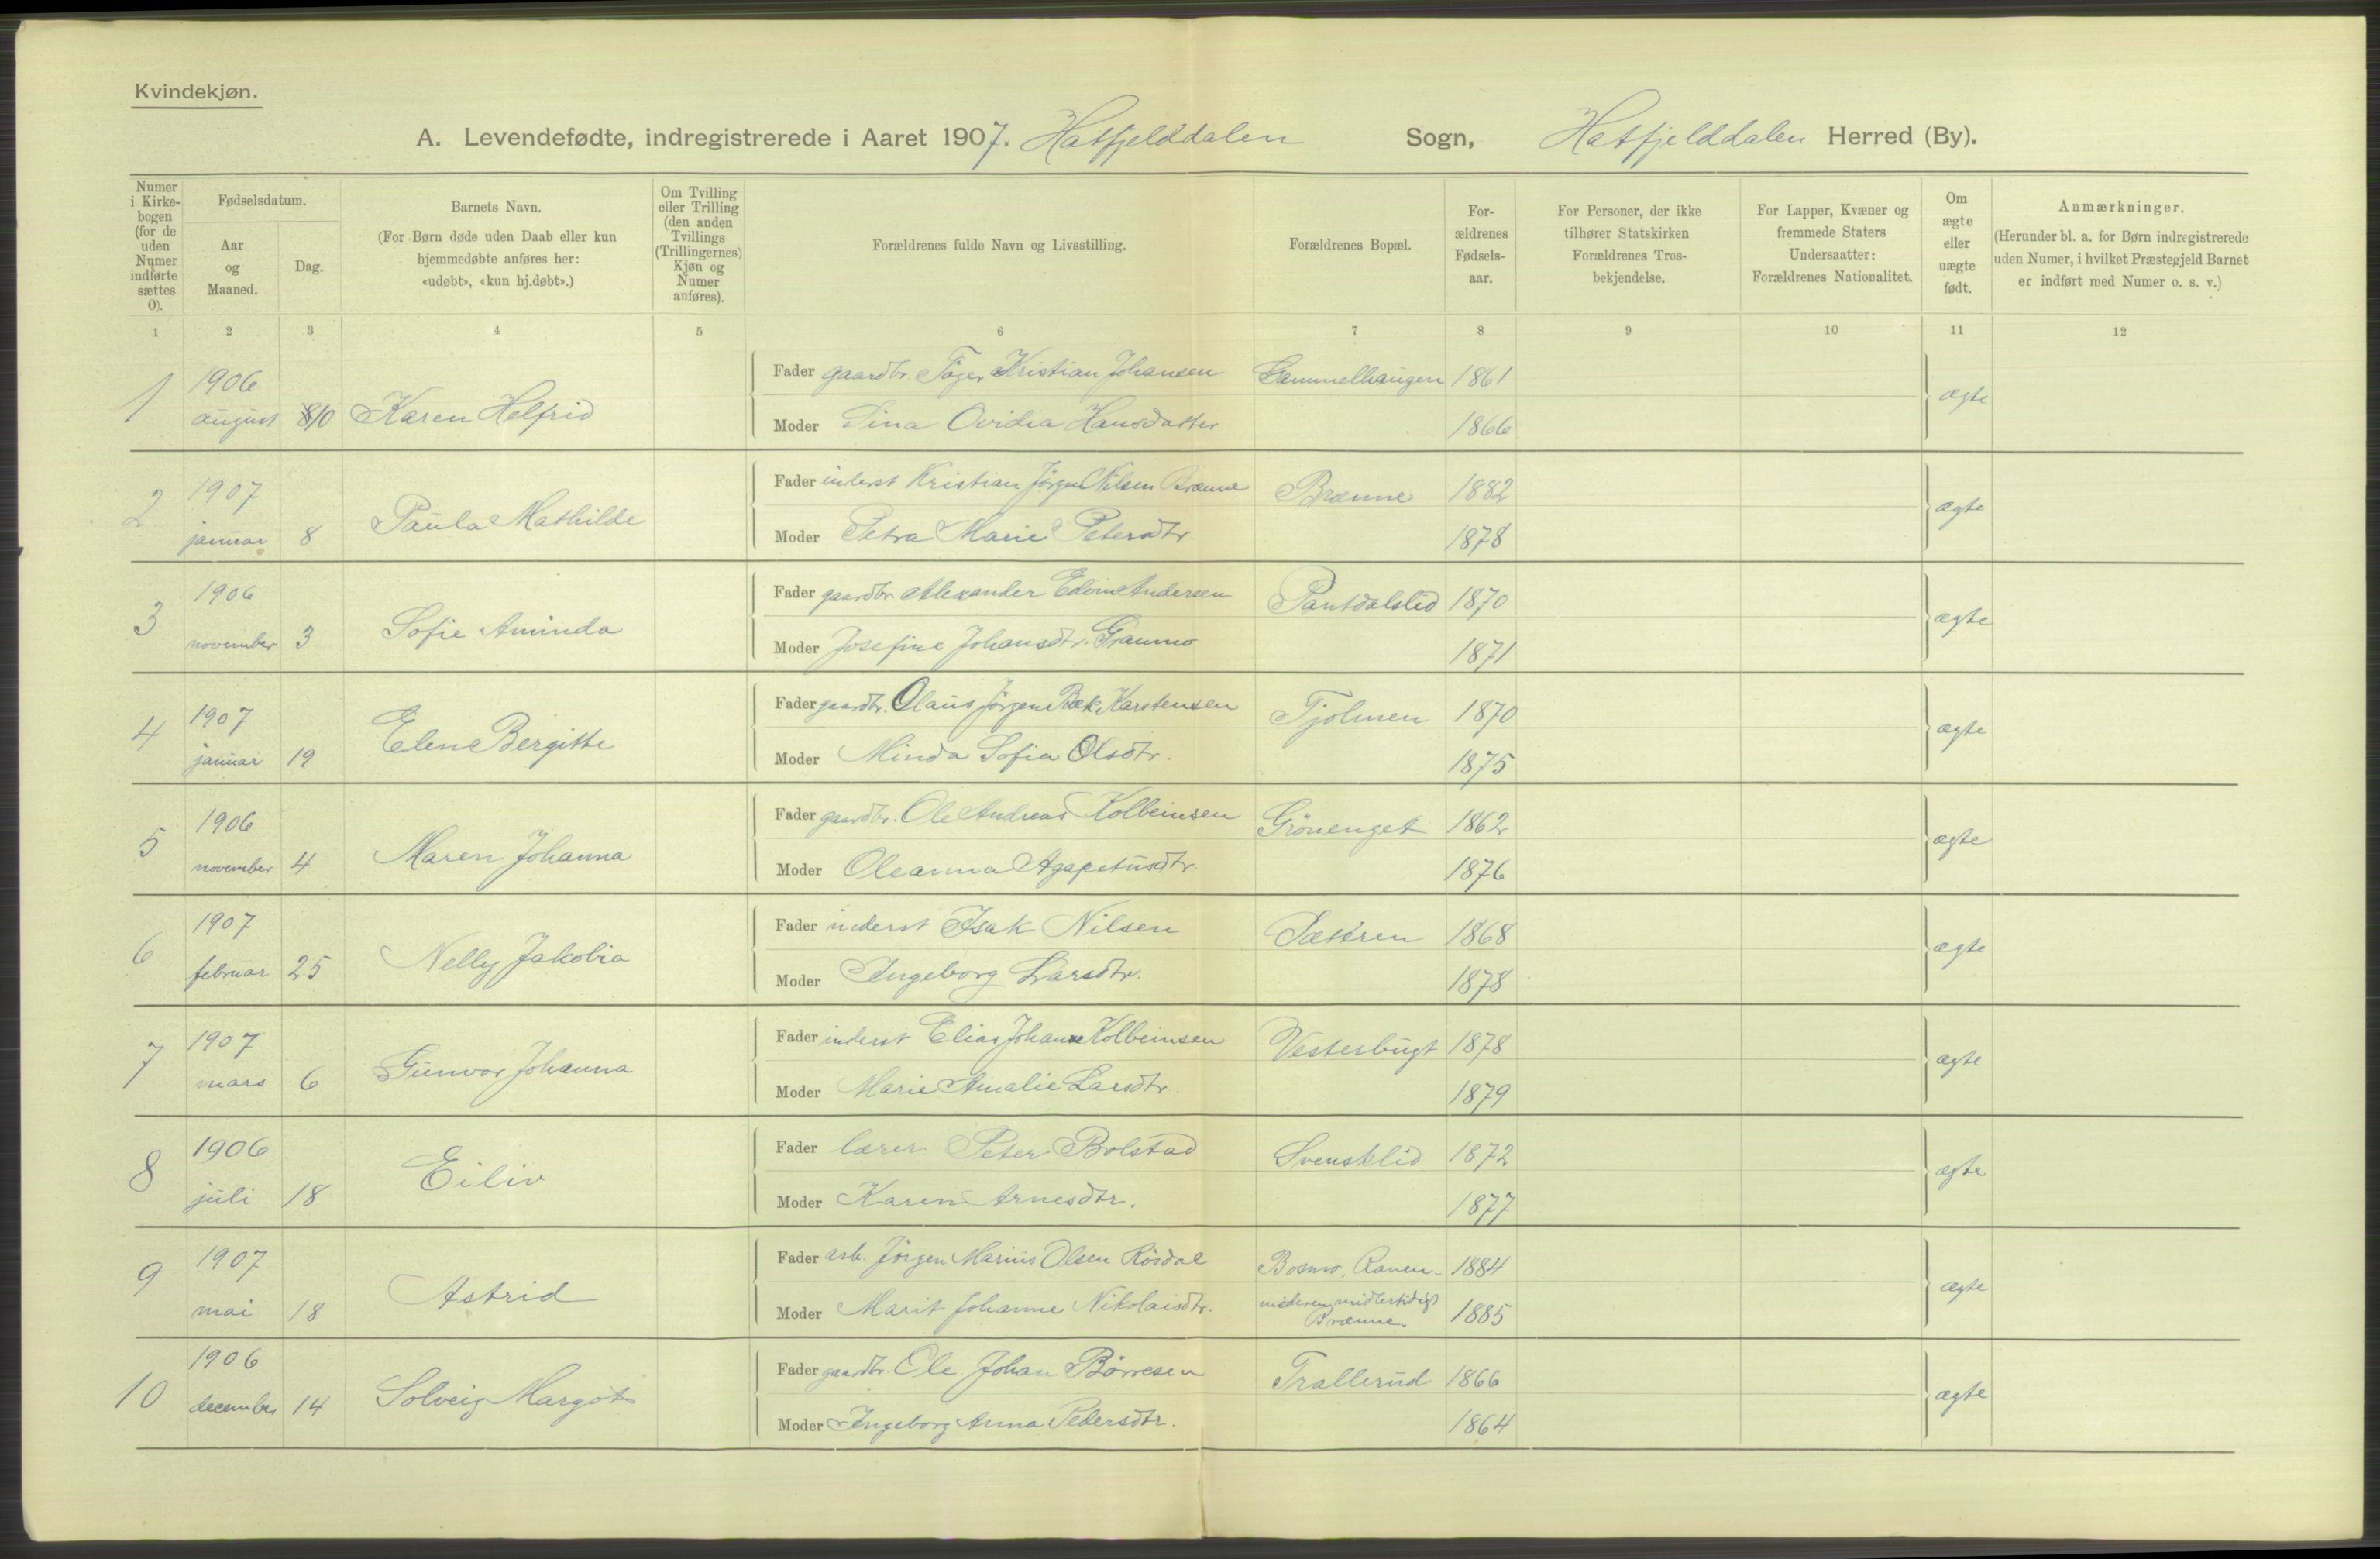 Kvindekjøn.
A. Levendefødte, indregistrerede i Aaret 1907. Hatfjelddalen Sogn, Hatfjelddalen Herred (By).
Numer i Kirkebogen (for de uden Numer indførte sættes 0).
Fødselsdatum.
Aar og Maaned.
Dag.
Barnets Navn.
(For Børn døde uden Daab eller kun hjemmedøbte anføres her: «udøbt», «kun hj.døbt».)
Om Tvilling eller Trilling (den anden Tvillings (Trillingernes) Kjøn og Numer anføres).
Forældrenes fulde Navn og Livsstilling.
Forældrenes Bopæl.
Forældrenes Fødselsaar.
For Personer, der ikke tilhører Statskirken Forældrenes Trosbekjendelse.
For Lapper, Kvæner og fremmede Staters Undersaatter: Forældrenes Nationalitet.
Om ægte eller uægte født.
Anmærkninger.
(Herunder bl. a. for Børn indregistrerede uden Numer, i hvilket Præstegjeld Barnet er indført med Numer o. s. v.)
1 2 3 4 5 6 7 8 9 10 11 12
1 1906 august 10 Karen Helfrid
Fader gaardbr. Kristian Johansen Gammelhaugen 1861
Moder Sina Ovidia Hansdatter 1866
ægte
2 1907 januar 8 Paula Mathilde
Fader inderst Kristian Jörgen Nilsen Brænne Brænne 1882
Moder Petra Marie Petersdtr 1878
ægte
3 1906 november 3 Sofie Aminda
Fader gaardbr Alexander Edvin Andersen Pantdalslid 1870
Moder Josefine Johansdtr. Granmo 1871
ægte
4 1907 januar 19 Elen Bergitte
Fader gaardbr. Olaus Jörgen Bek Karstensen Tjolmen 1870
Moder Minda Sofia Olsdtr. 1875
ægte
5 1906 november 4 Maren Johanna
Fader gaardbr. Ole Andreas Kolbeinsen Grönenget 1862
Moder Oleanna Agapetusdtr. 1876
ægte
6 1907 februar 25 Nelly Jakobia
Fader inderst Isak Nilsen Sætren 1868
Moder Ingeborg Larsdtr. 1878
ægte
7 1907 mars 6 Gunvor Johanna
Fader inderst Elias Johan Kolbeinsen Vesterbugt 1878
Moder Marie Amalie Larsdtr. 1879
ægte
8 1906 juli 18 Eiliv
Fader lærer Peter Bolstad Svensklid 1872
Moder Karen Arnesdtr. 1877
ægte
9 1907 mai 18 Astrid
Fader arb. Jörgen Marius Olsen Rösdal Bosmo, Ranen 1884
Moder Marit Johanne Nikolaisdtr. moderen midlertidigt Brænne 1885
ægte
10 1906 december 14 Solveig Margot
Fader gaardbr. Ole Johan Börresen Trallerud 1866
Moder Ingeborg Anna Pedersdtr. 1864
ægte